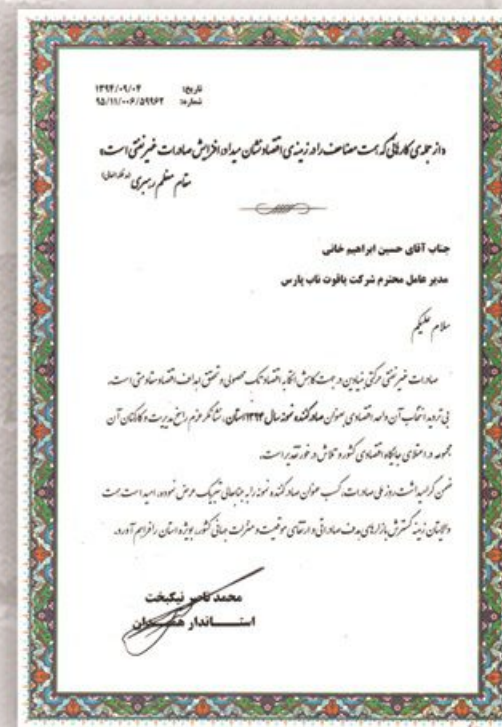 تاریخ: ۱۳۹۴/۰۹/۰۴
شماره: ۹۵/۱۱/۰۰۶/۵۹۹۶۲
«از جمله‌ی کارهائی که همت مضاعف را در زمینه‌ی اقتصاد نشان میداد، افزایش صادرات غیر نفتی است»
مقام معظم رهبری (مد ظله العالی)
جناب آقای حسین ابراهیم خانی
مدیر عامل محترم شرکت یاقوت ناب پارس
سلام علیکم
صادرات غیر نفتی حرکتی بنیادین در جهت کاهش اتکا به اقتصاد تک محصولی و تحقق اهداف اقتصاد مقاومتی است.
بی تردید انتخاب آن واحد اقتصادی بعنوان صادر کننده نمونه سال ۱۳۹۴ استان، نشانگر عزم راسخ مدیریت و کارکنان آن
مجموعه در اعتلای جایگاه اقتصادی کشور و تلاش در خور تقدیر است.
ضمن گرامیداشت روز ملی صادرات، کسب عنوان صادر کننده نمونه را به جنابعالی تبریک عرض نموده، امید است همت
والایتان زمینه گسترش بازارهای هدف صادراتی و ارتقای موقعیت و منزلت جهانی کشور، بویژه استان را فراهم آورد.
محمد ناصر نیکبخت
استاندار همدان